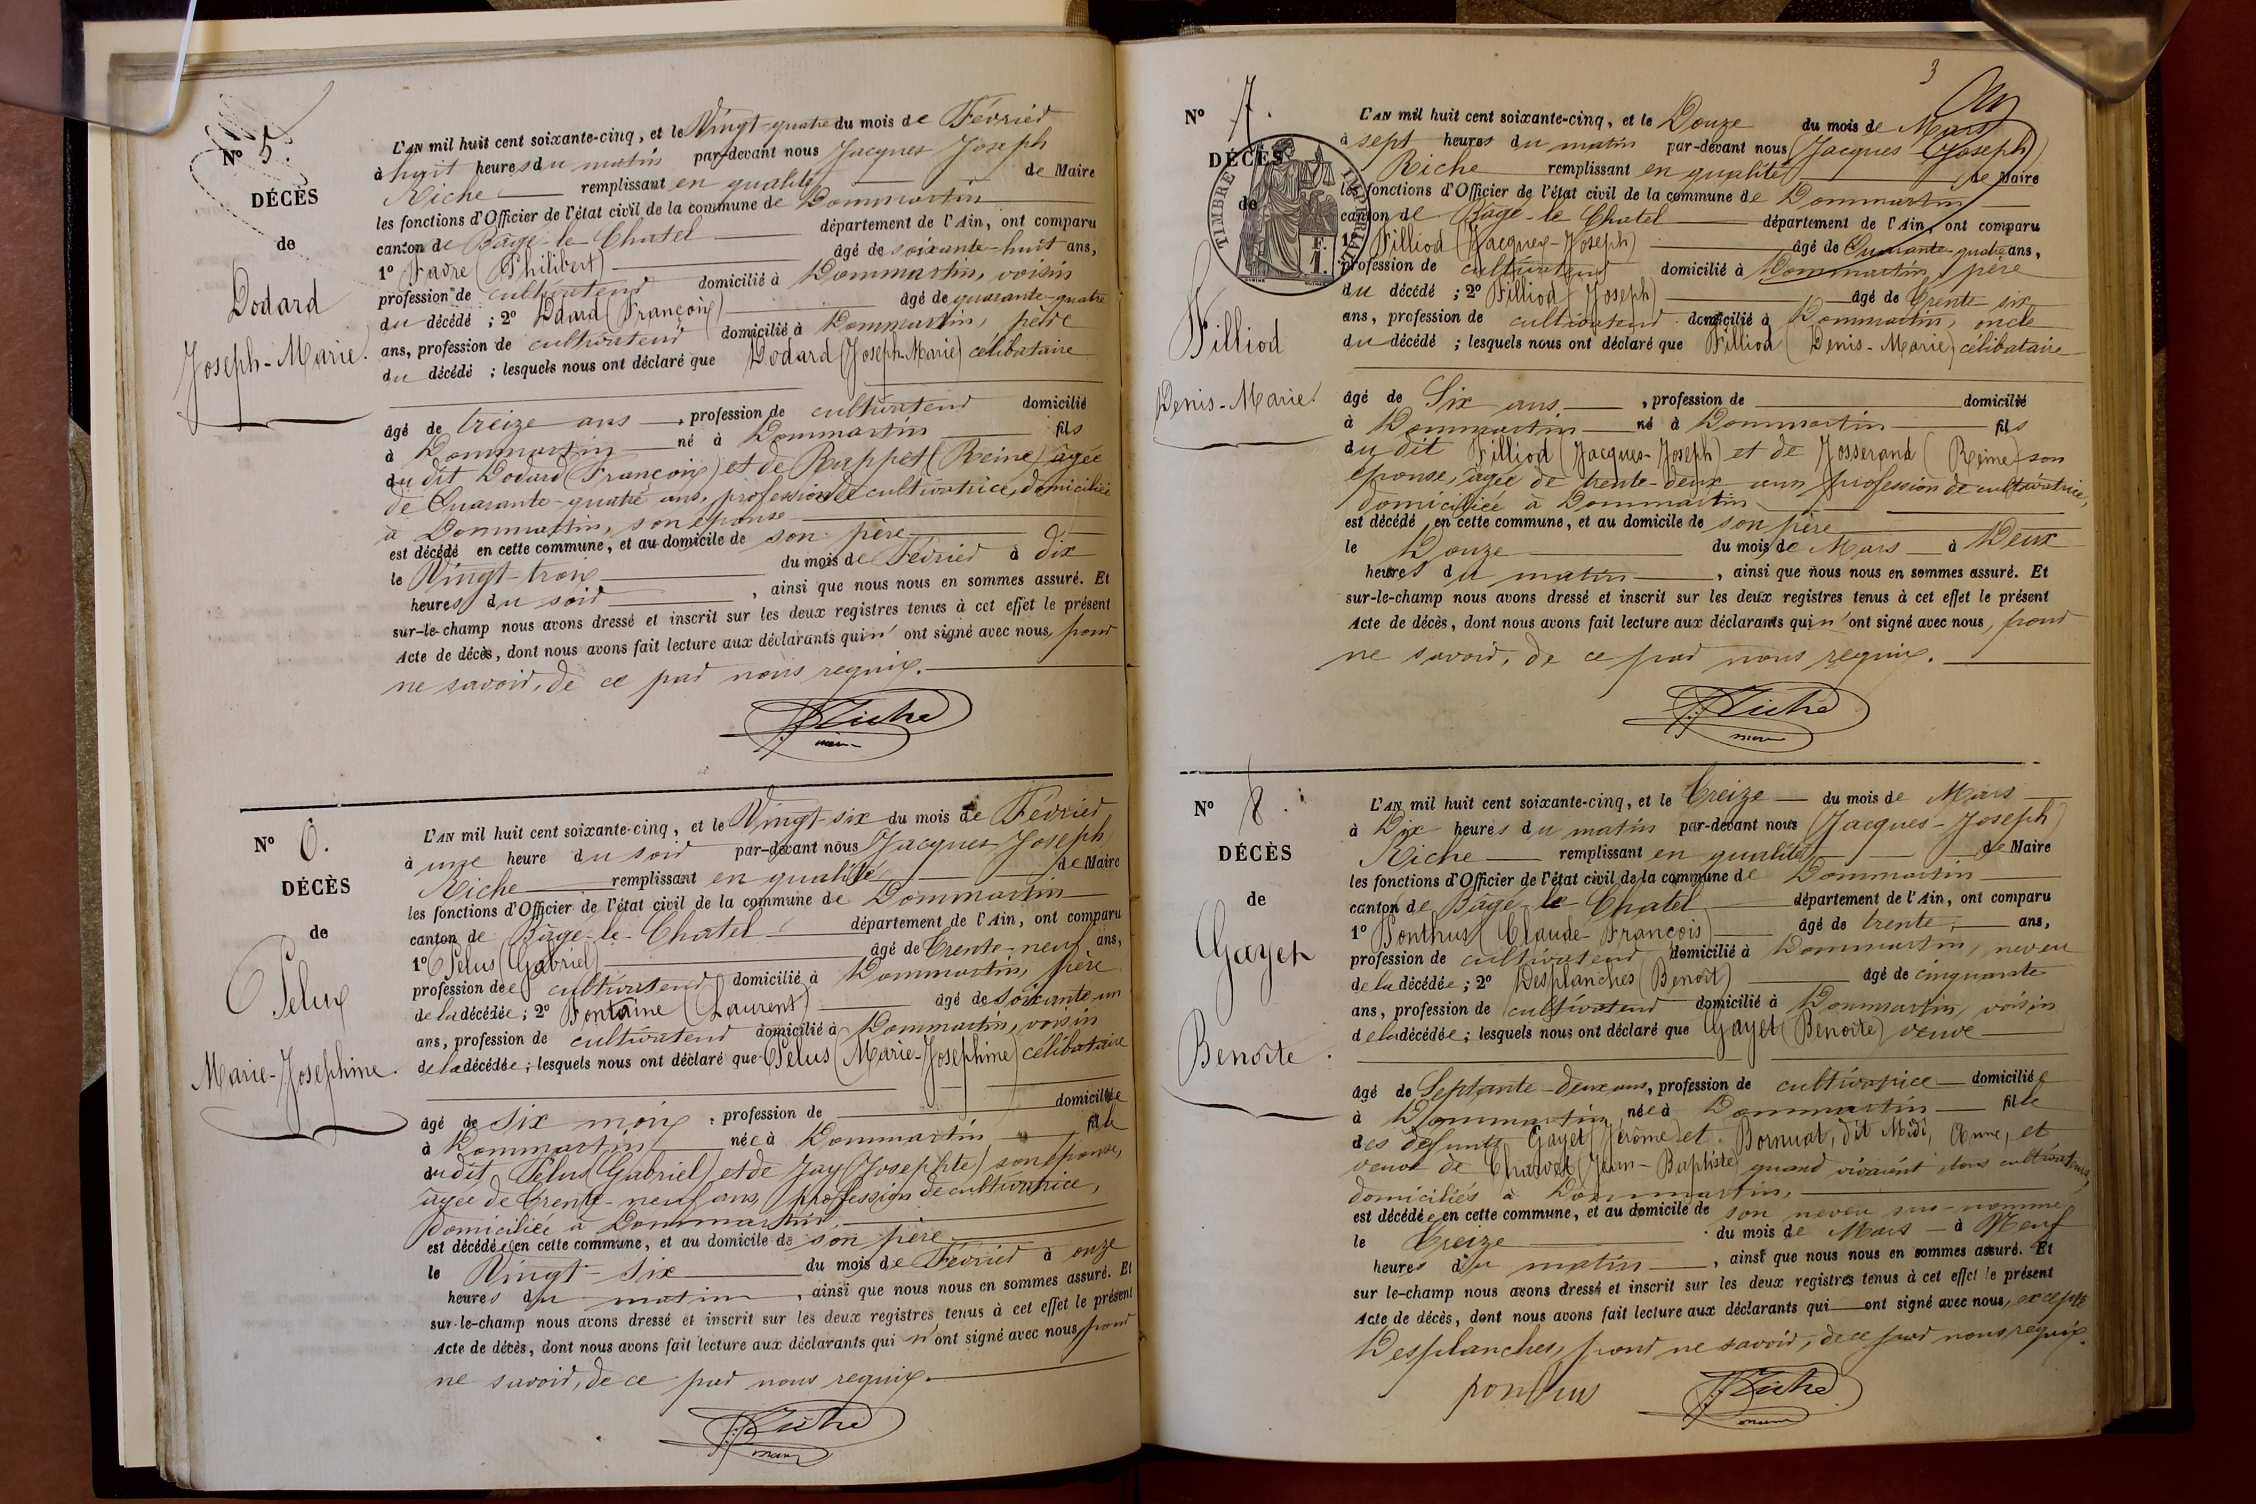 N° 5.
DÉCÈS
de
Dodard
Joseph-Marie.
L'AN mil huit cent soixante-cinq, et le Vingt-quatre du mois de Février
à huit heures du matin par-devant nous Jacques Joseph
Riche remplissant en qualité de Maire
les fonctions d'Officier de l'état civil de la commune de Dommartin
canton de Bâgé-le-Chatel département de l'Ain, ont comparu
1° Favre (Philibert) âgé de soixante-huit ans,
profession de cultivateur domicilié à Dommartin, voisin
du décédé ; 2° Ddard (François) âgé de quarante-quatre
ans, profession de cultivateur domicilié à Dommartin, père
du décédé ; lesquels nous ont déclaré que Dodard (Joseph-Marie) célibataire
âgé de treize ans, profession de cultivateur domicilié
à Dommartin né à Dommartin fils
du dit Dodard (François) et de Ruppet (Reine) âgée
de Quarante-quatre ans, profession de cultivatrice, domiciliée
à Dommartin, son épouse
est décédé en cette commune, et au domicile de son père
le Vingt-trois du mois de Février à dix
heures du soir, ainsi que nous nous en sommes assuré. Et
sur-le-champ nous avons dressé et inscrit sur les deux registres tenus à cet effet le présent
Acte de décès, dont nous avons fait lecture aux déclarants qui n'ont signé avec nous, pour
ne savoir, de ce par nous requis.
J.J. Riche
maire
N° 6.
DÉCÈS
de
Pelus
Marie-Josephine.
L'AN mil huit cent soixante-cinq, et le Vingt-six du mois de Février
à une heure du soir par-devant nous Jacques Joseph
Riche remplissant en qualité de Maire
les fonctions d'Officier de l'état civil de la commune de Dommartin
canton de Bâgé-le-Chatel département de l'Ain, ont comparu
1° Pelus (Gabriel) âgé de trente-neuf ans,
profession de cultivateur domicilié à Dommartin, père
de la décédée ; 2° Fontaine (Laurent) âgé de soixante-un
ans, profession de cultivateur domicilié à Dommartin, voisin
de la décédée ; lesquels nous ont déclaré que Pelus (Marie-Josephine) célibataire
âgé de six mois, profession de domiciliée
à Dommartin née à Dommartin fille
du dit Pelus (Gabriel) et de Jay (Josephte) son épouse,
âgée de trente-neuf ans, profession de cultivatrice,
domiciliée à Dommartin,
est décédée en cette commune, et au domicile de son père
le Vingt-six du mois de Février à onze
heures du matin, ainsi que nous nous en sommes assuré. Et
sur-le-champ nous avons dressé et inscrit sur les deux registres tenus à cet effet le présent
Acte de décès, dont nous avons fait lecture aux déclarants qui n'ont signé avec nous, pour
ne savoir, de ce par nous requis.
J.J. Riche
maire
3
N° 7.
DÉCÈS
de
TIMBRE IMPÉRIAL
1 F.
Filliod
Denis-Marie.
L'AN mil huit cent soixante-cinq, et le Douze du mois de Mars
à sept heures du matin par-devant nous Jacques-Joseph
Riche remplissant en qualité de Maire
les fonctions d'Officier de l'état civil de la commune de Dommartin
canton de Bâgé-le-Chatel département de l'Ain, ont comparu
1° Filliod (Jacques-Joseph) âgé de Quarante-quatre ans,
profession de cultivateur domicilié à Dommartin, père
du décédé ; 2° Filliod (Joseph) âgé de trente-six
ans, profession de cultivateur domicilié à Dommartin, oncle
du décédé ; lesquels nous ont déclaré que Filliod (Denis-Marie) célibataire
âgé de Six ans, profession de domicilié
à Dommartin né à Dommartin fils
du dit Filliod (Jacques-Joseph) et de Josserand (Reine) son
épouse, âgée de trente-deux ans profession de cultivatrice,
domiciliée à Dommartin
est décédé en cette commune, et au domicile de son père
le Douze du mois de Mars à Deux
heures du matin, ainsi que nous nous en sommes assuré. Et
sur-le-champ nous avons dressé et inscrit sur les deux registres tenus à cet effet le présent
Acte de décès, dont nous avons fait lecture aux déclarants qui n'ont signé avec nous, pour
ne savoir, de ce par nous requis.
J.J. Riche
maire
N° 8.
DÉCÈS
de
Gayet
Benoîte.
L'AN mil huit cent soixante-cinq, et le Treize du mois de Mars
à Dix heures du matin par-devant nous Jacques-Joseph
Riche remplissant en qualité de Maire
les fonctions d'Officier de l'état civil de la commune de Dommartin
canton de Bâgé-le Chatel département de l'Ain, ont comparu
1° Ponthus (Claude-François) âgé de trente ans,
profession de cultivateur domicilié à Dommartin, neveu
de la décédée ; 2° Desplanches (Benoît) âgé de cinquante
ans, profession de cultivateur domicilié à Dommartin, voisin
de la décédée ; lesquels nous ont déclaré que Gayet (Benoîte) veuve
âgé de Septante-deux ans, profession de cultivatrice domiciliée
à Dommartin née à Dommartin fille
des défunts Gayet (Jérôme) et Bornuat, dit Midi, Anne, et
veuve de Charvet (Jean-Baptiste) quand vivaient tous cultivateurs,
domiciliés à Dommartin,
est décédée en cette commune, et au domicile de son neveu sus-nommé
le Treize du mois de Mars à Neuf
heures du matin, ainsi que nous nous en sommes assuré. Et
sur le-champ nous avons dressé et inscrit sur les deux registres tenus à cet effet le présent
Acte de décès, dont nous avons fait lecture aux déclarants qui ont signé avec nous, excepté
Desplanches, pour ne savoir, de ce par nous requis.
ponthus J.J. Riche
maire